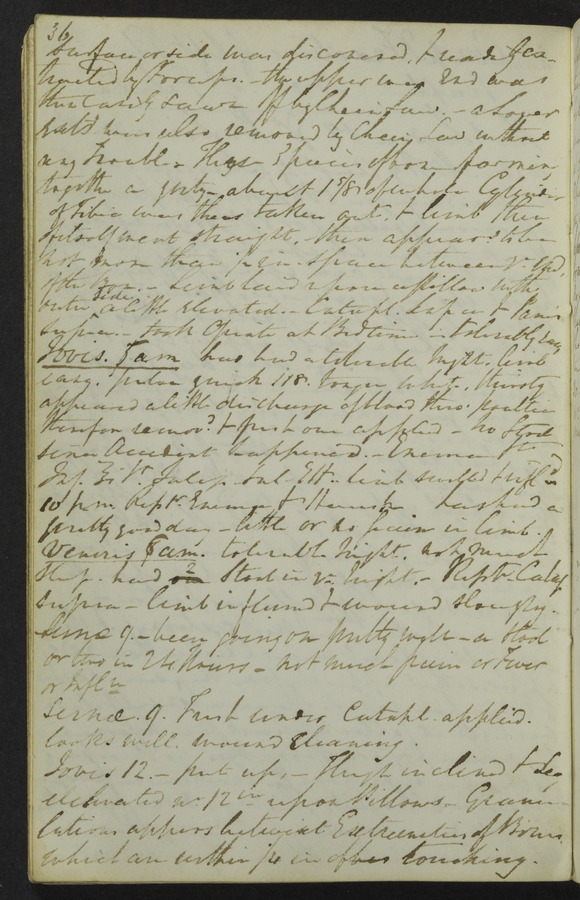 36
Surface or side was discovered, & readily ex-
tracted by Forceps. the upper end was
then easily sawn off by Chain Saw. - a longer
was also removed by Chain Saw without
any trouble - These 3 pieces of bone forming
together a about 1 5/8 of whole Cylinder
of Tibia was then taken out. & limb then
straight. then appeared to be
not more than in space between ye. Ends
of the Bone. - Limb laid upon a pillow with
outer side a little elevated. - Catapl. & Panis
supra. - took Opiate at Bedtime. tolerably easy
Jovis. 5 am has had a tolerable Night. limb
easy. pulse quick 118. tongue white, thirsty
appeared a little discharge of blood thro' poultice
therefore remov'd. & fresh one applied - no Stool
since Accident happened. - Enema
Inf. limb swelled & infl'd
10 p.m. Rept. Enema & has had a
pretty good day - little or no pain in limb.
Veneris 5 am. tolerable Night, not much
sleep. had 2 Stools in ye. Night. - Rept. Catap
supra - limb inflamed & wound sloughy.
Lunæ 9. - been going on pretty well - a Stool
or two in 24 Hours - not much pain or Fever
or Infln
Lunæ. 9. Fresh Catapl. applied.
looks well. wound cleaning.
Jovis 12. - put up, - Thigh inclined & Leg
elevated 12 in upon Pillows. - Granu-
lations appears betwixt Extremities of Bones
which are within in of touching.